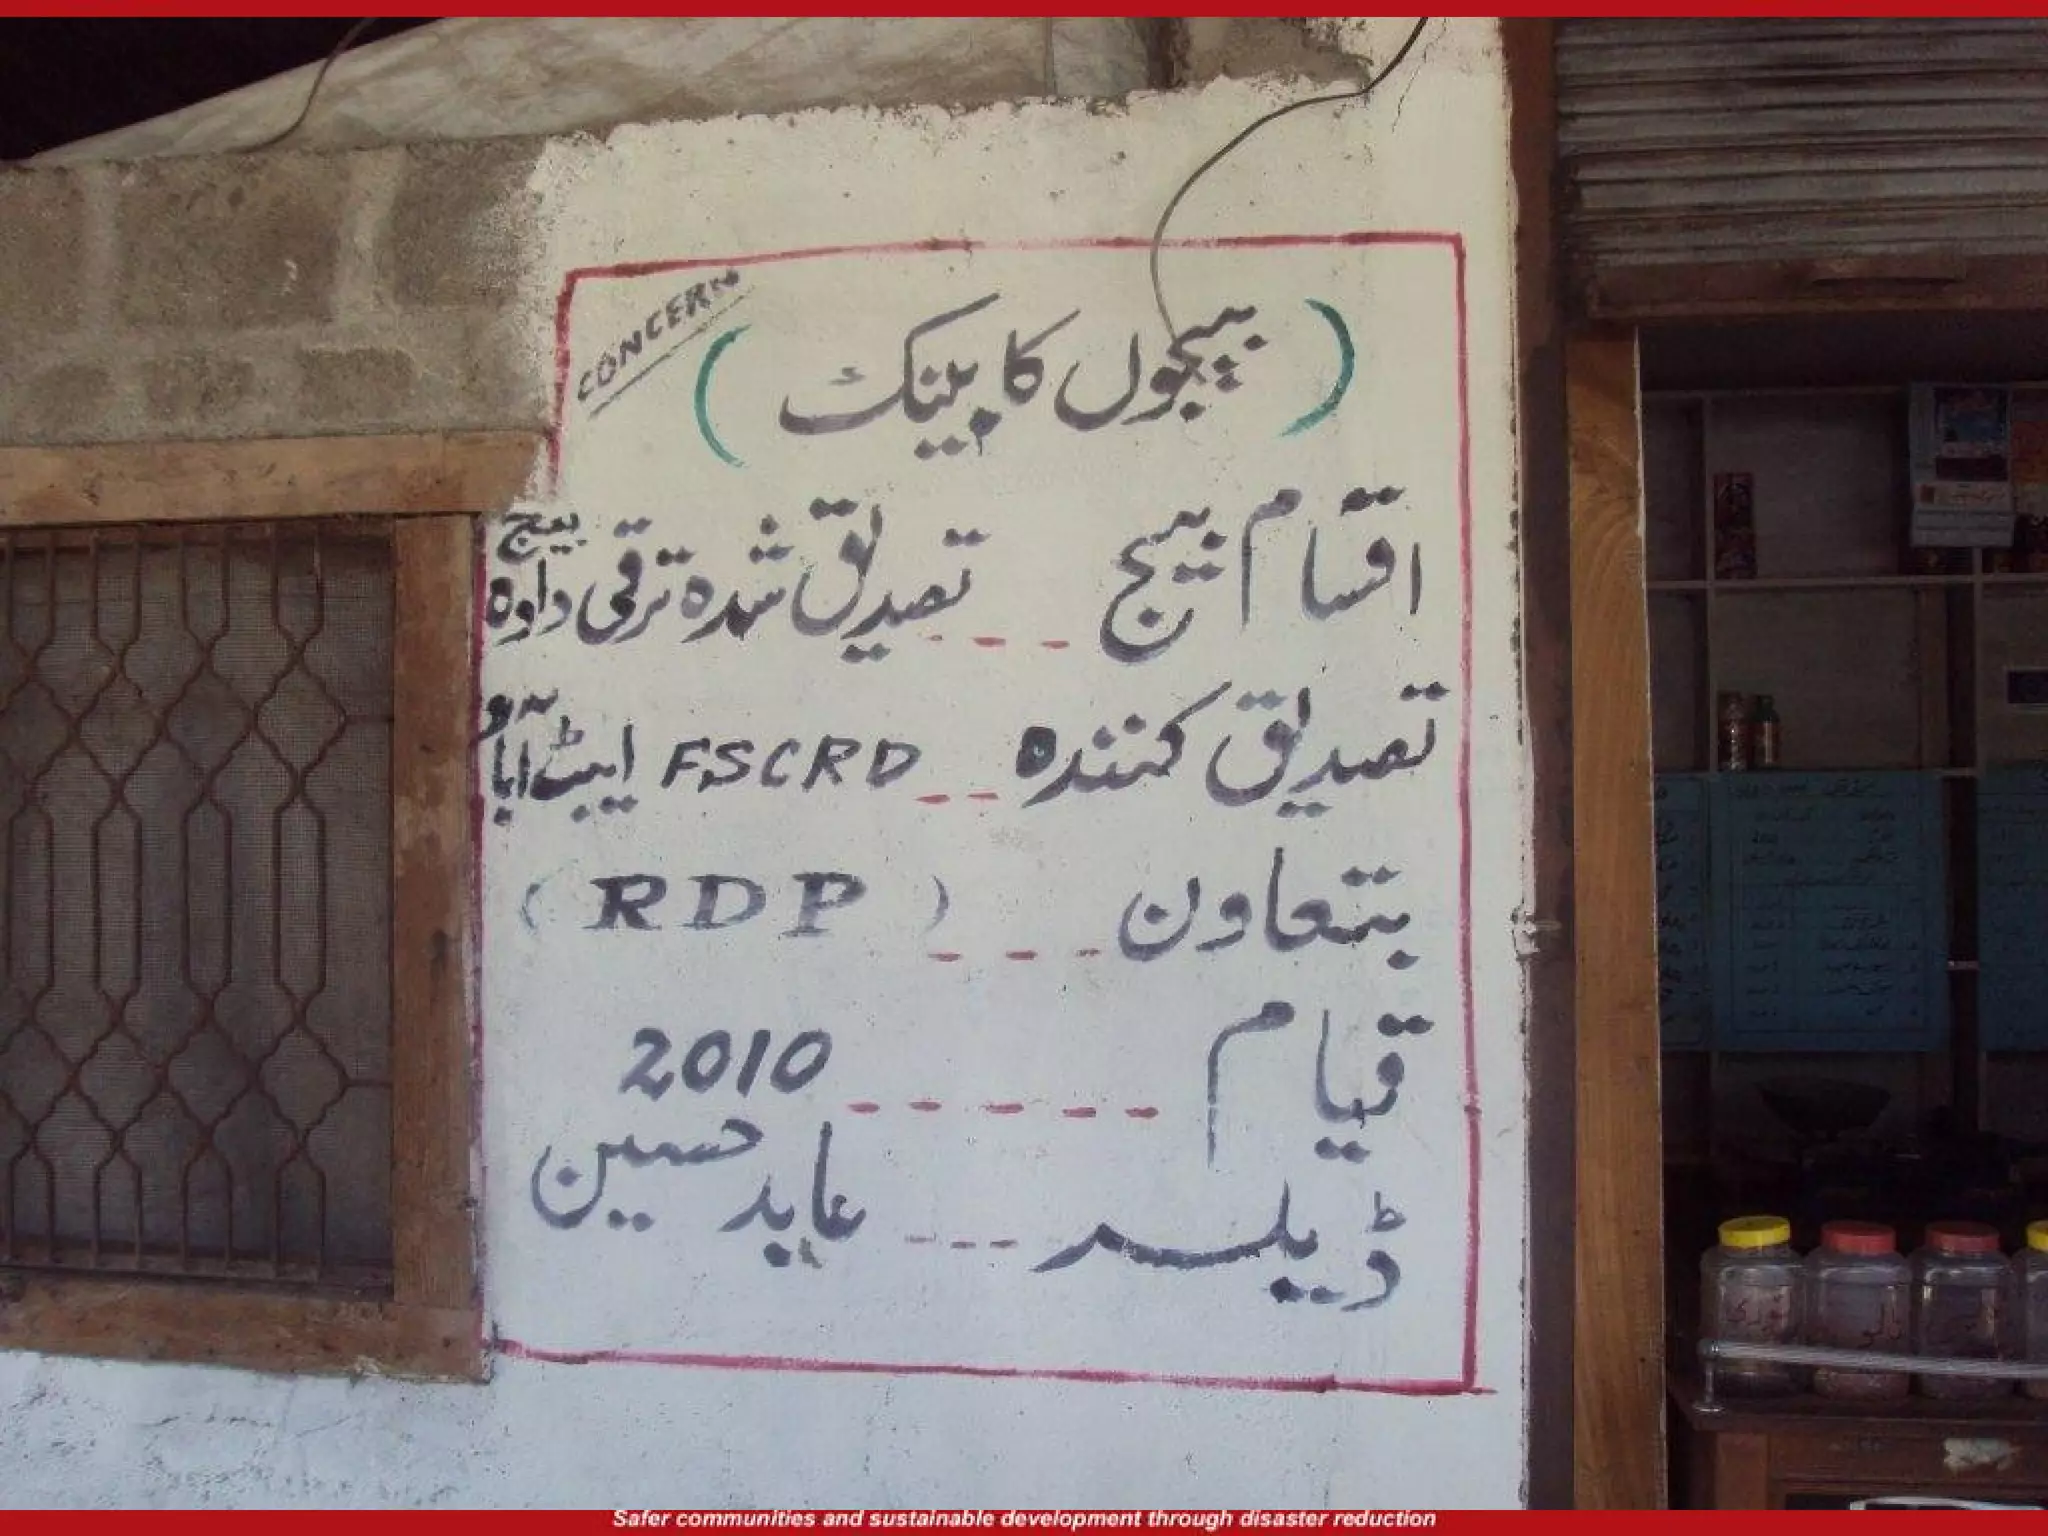 CONCERN
(بیجوں کا بینک)
اقسام بیج --- تصدیق شدہ ترقی دادہ بیج
تصدیق کنندہ -- FSCRD ایبٹ آباد
بتعاون --- (RDP)
قیام ----- 2010
ڈیلر --- عابد حسین
Safer communities and sustainable development through disaster reduction